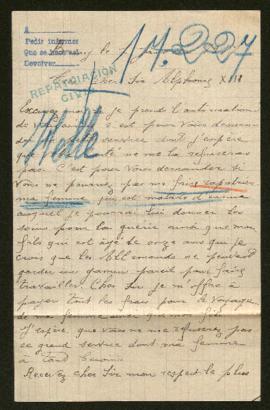 A
Pedir informes
Que se hace est
Devolver
17.227
REPATRIACION
CIVIL
Cher Sir Alphonse XIII
Excusez moi si je prend l'autorisation
de
c'est pour vous demander
un service dont j'espère
que
ne me la refuserai
pas. C'est pour vous demander si
vous ne pourriez pas me faire rapatrier
ma femme qui est malade
auquel je pourrai lui donner les
soins pour la guérir ainsi que mon
fils qui est âgé de onze ans que je
crois que les Allemands ne peuvent
garder un gamin pareil pour faire
travailler. Cher Sir je m'offre à
payer tout les frais pour le voyage
de ma femme avec mon fils
J'espère que vous ne me refuserez pas
ce grand service dont ma femme
à tant besoin
Recevez cher Sir mon respect le plus